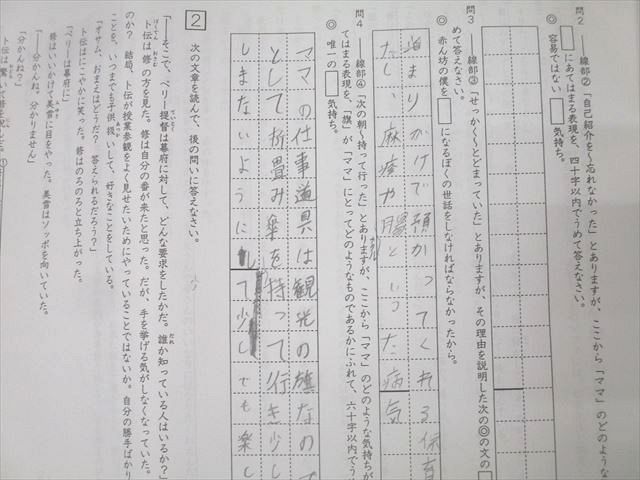 問2 ──線部②「自己紹介を〜忘れなかった」とありますが、ここから「ママ」のどのような
□にあてはまる表現を、四十字以内でうめて答えなさい。
◎ 容易ではない□気持ち。
問3 ──線部③「せっかく〜とどまっていた」とありますが、その理由を説明した次の◎の文の
めて答えなさい。
◎ 赤ん坊の僕を□になるぼくの世話をしなければならなかったから。
泊まりがけで預かってくれる保育
たし、麻疹や
といった病気
問4 ──線部④「次の朝〜持って行った」とありますが、ここから「ママ」のどのような気持ちが
てはまる表現を、「旗」が「ママ」にとってどのようなものであるかにふれて、六十字以内でう
◎ 唯一の□気持ち。
ママの仕事道具は観光の旗なので
として折畳み傘を持って行き少し
しまないように
して少しでも楽し
2 次の文章を読んで、後の問いに答えなさい。
「──そこで、ペリー提督は幕府に対して、どんな要求をしたかだ。誰か知っている人はいるか?」
ト伝は修の方を見た。修は自分の番が来たと思った。だが、手を挙げる気がしなくなっていた。
のか? 結局、ト伝が授業参観をよく見せたいためにやっていることではないか。自分の勝手ばかり
ことを、いつまでも子供扱いして、好きなことをしている。
「オサム、おまえはどうだ? 答えられるだろう?」
ト伝はにこやかに笑った。修はのろのろと立ち上がった。
「ペリーは幕府に」
修はいいかけて美雪に目をやった。美雪はソッポを向いていた。
「分かんね?」
「──分かんね。分かりません」
ト伝は驚いて修を見